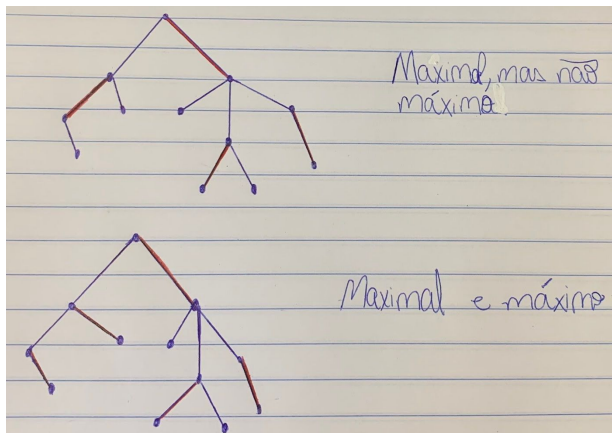 Maximal, mas não
máximo.
Maximal e máximo